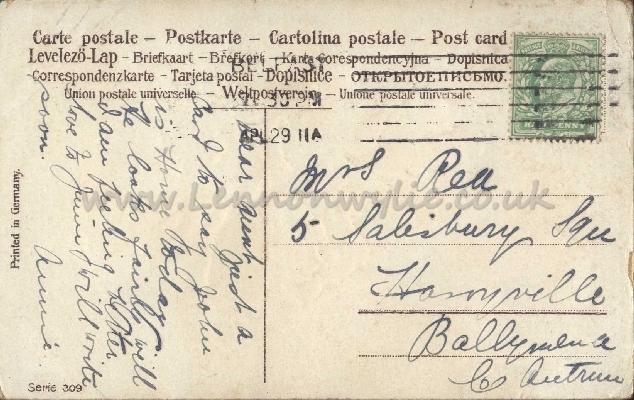 Carte postale – Postkarte – Cartolina postale – Post card
Levelező-Lap – Briefkaart – Brefkort – Karta Corespondencyjna – Dopisnica
Correspondenzkarte – Tarjeta postal – Dopisnice – ОТКРЫТОЕ ПИСЬМО.
Union postale universelle. – Weltpostverein – Unione postale universale.
BELFAST
APL 29 11A
Dear Aunt Just a
Card to say John
is Home today
He looks fairly well
I am feeling better
love to Jennie I will write
soon.
Annie.
Mrs Rea
5 Salisbury Squ
Harryville
Ballymena
Co Antrim
Printed in Germany.
Serie 309
www.Lennonwylie.co.uk